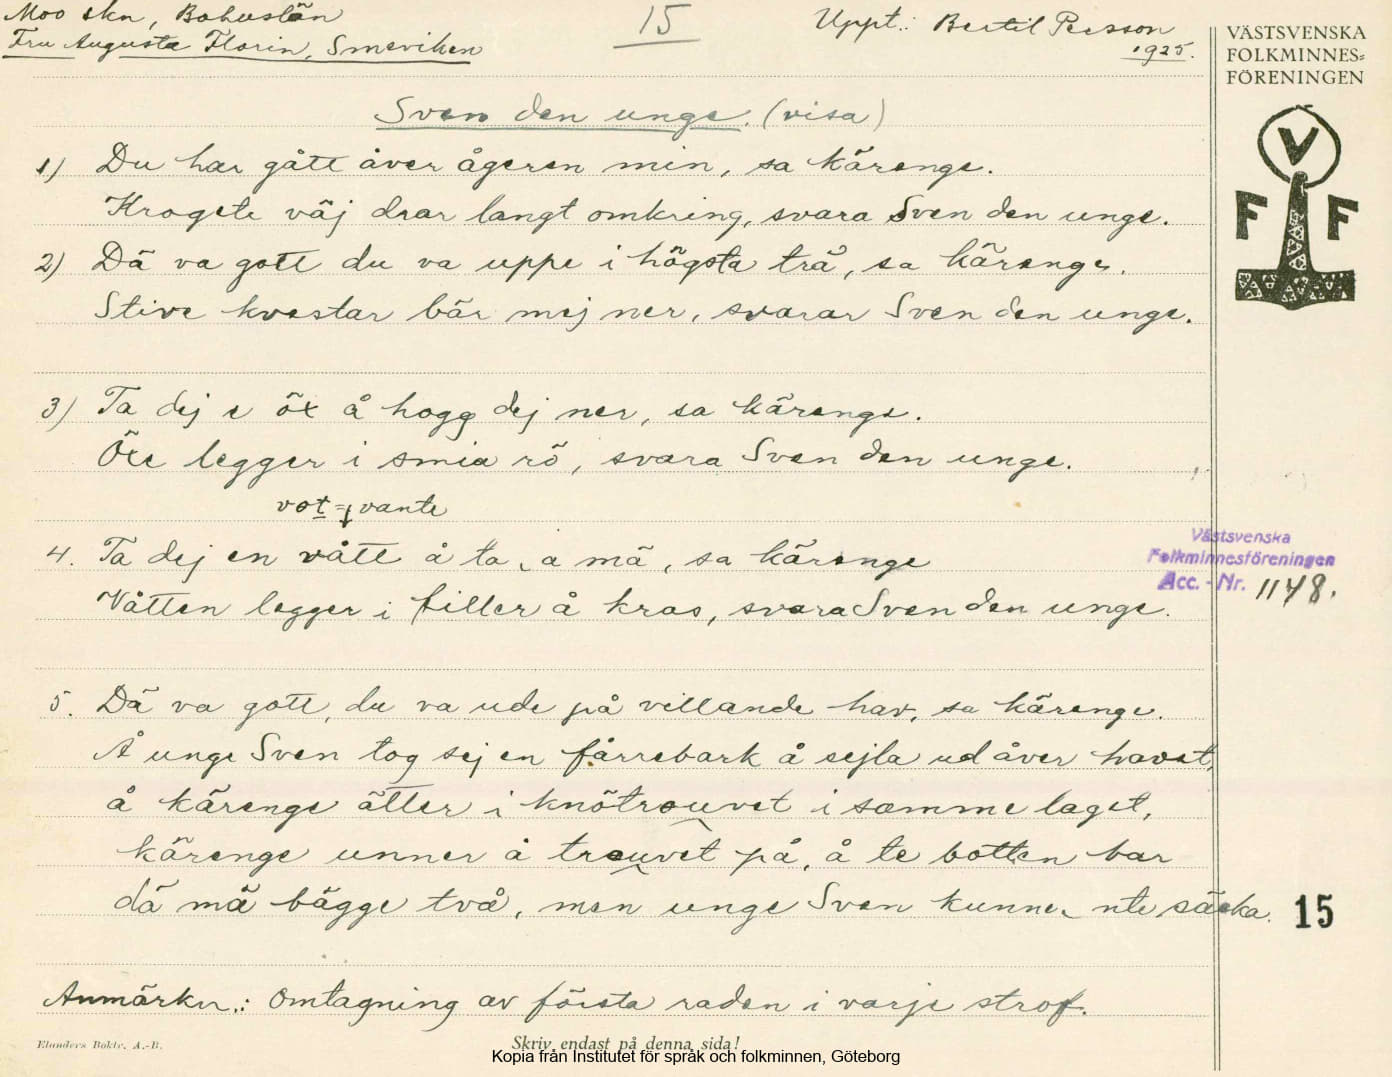 Moo skn, Bohuslän
Fru Augusta Florin, Smeviken
15
Uppt.: Bertil Persson
1925.
VÄSTSVENSKA
FOLKMINNES=
FÖRENINGEN
V
F F
Sven den unge. (visa)
1) Du har gått åver ågeren min, sa kärenge.
Krogete väj drar langt omkring, svara Sven den unge.
2) Dä va gott du va uppe i högsta trä, sa kärenge.
Stive kvestar bär mej ner, svarar Sven den unge.
3) Ta dej e öx å hogg dej ner, sa kärenge.
Öxe legger i smia rö, svara Sven den unge.
vot = vante
4. Ta dej en vått å ta, a mä, sa kärenge
Våtten legger i filler å kras, svara Sven den unge.
Västsvenska
Folkminnesföreningen
Acc. - Nr. 1178.
5. Dä va gott, du va ude på villande hav, sa kärenge.
Å unge Sven tog sej en fårrebark å sejla ud åver havet,
å kärenge ätter i knötrouvet i samme laget,
kärenge unner å trouvet på, å te botten bar
dä mä bägge två, men unge Sven kunne nte säcka.
15
Anmärkn.: Omtagning av första raden i varje strof.
Elanders Boktr. A.-B.
Skriv endast på denna sida!
Kopia från Institutet för språk och folkminnen, Göteborg